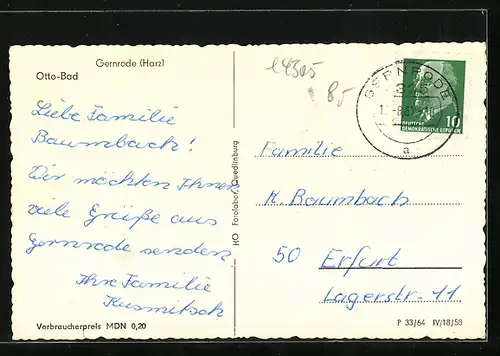 Gernrode (Harz)
Otto-Bad
Liebe Familie
Baumbach!
Wir möchten Ihnen
viele Grüße aus
Gernrode senden.
Ihre Familie
Kusmitsch
Verbraucherpreis MDN 0,20
HO Fotolabor Quedlinburg
L4305
85
GERNRODE
a
10
DEUTSCHE
DEMOKRATISCHE REPUBLIK
Familie
K. Baumbach
50 Erfurt
Lagerstr. 11
P 33/64 IV/18/58